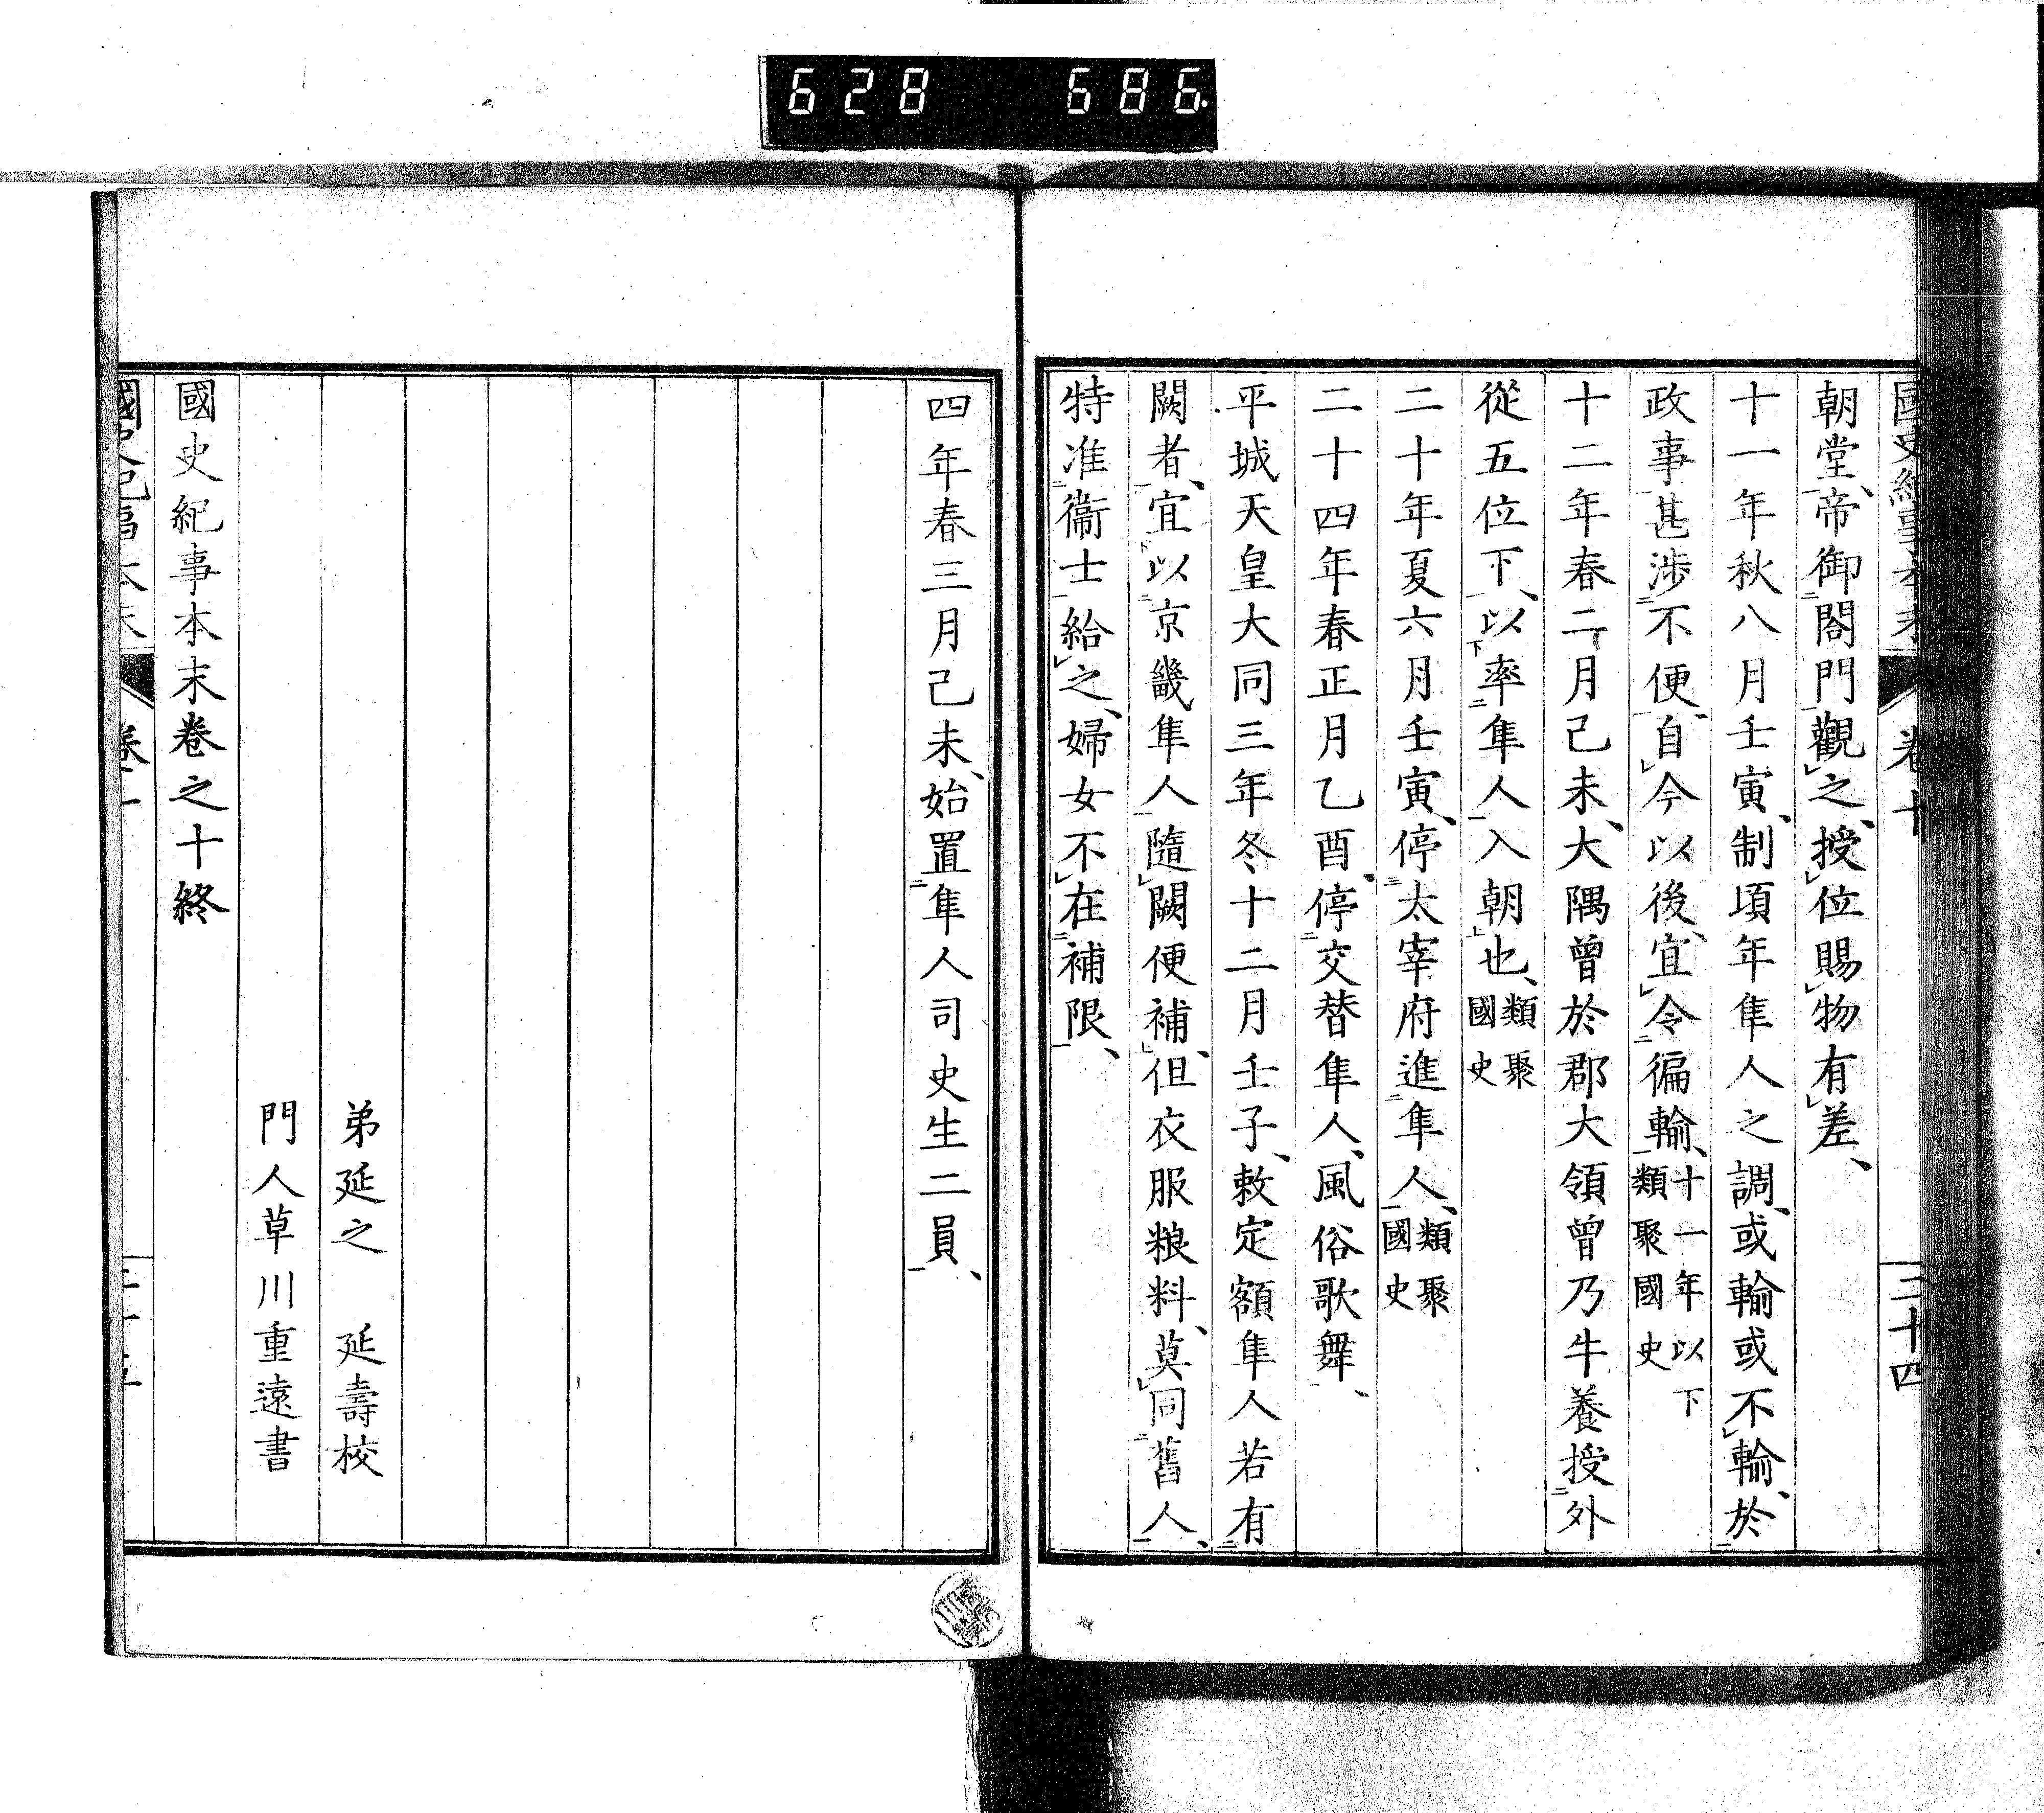 628 686.
國史紀事本末 卷十 三十四
朝堂、帝御閤門觀之、授位賜物有差、
十一年秋八月壬寅、制頃年隼人之調、或輸或不輸、於
政事甚渉不便、自今以後、宜令徧輸、十一年以下類聚國史
十二年春二月己未、大隅曾於郡大領曾乃牛養授外
從五位下、以率隼人入朝也、類聚國史
二十年夏六月壬寅、停太宰府進隼人、類聚國史
二十四年春正月乙酉、停交替隼人、風俗歌舞、
平城天皇大同三年冬十二月壬子、敕定額隼人若有
闕者、宜以京畿隼人隨闕便補、但衣服粮料、莫同舊人、
特准衞士給之、婦女不在補限、
四年春三月己未、始置隼人司史生二員、
弟延之 延壽校
門人草川重遠書
國史紀事本末卷之十終